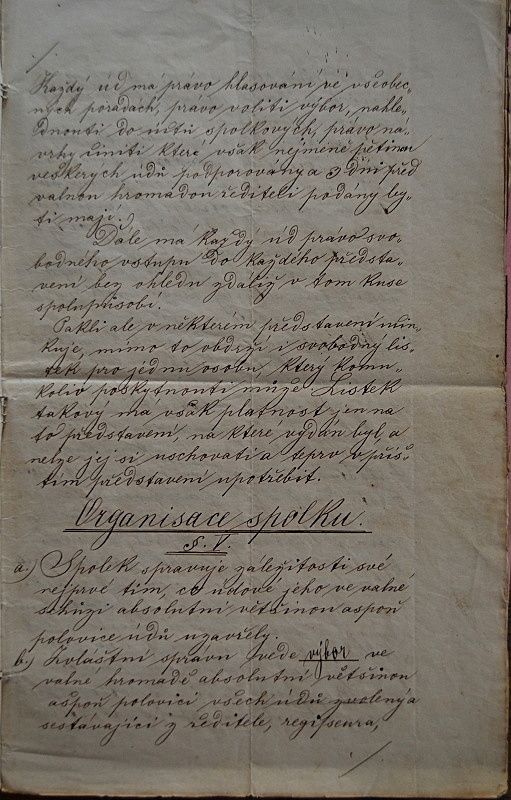 Každý úd má právo hlasování ve všeobec„
ných poradách, právo voliti výbor, nahlé„
dnouti do účtů spolkových, právo ná„
vrhy činiti které však nejméně pětinou
veškerých údů podporovány a 3 dni před
valnou hromadou řediteli podány bý„
ti mají.
Dále má každý úd právo svo„
bodného vstupu do každého předsta„
vení bez ohledu zdaliž v tom kuse
spolupůsobí.
Pakli ale v některém představení účin„
kuje, mimo to obdrží i svobodný lís„
tek pro jednu osobu, který komu„
koliv poskytnouti může. Lístek
takový má však platnost jen na
to představení, na které vydán byl, a
nelze jej si uschovati a teprv v příš„
tím představení upotřebit.
Organisace spolku.
§. V.
a.) Spolek spravuje záležitosti své
nejprvé tím, co údové jeho ve valné
schůzi absolutní většinou aspoň
polovice údů uzavřely.
b.) Zvláštní správu vede výbor ve
valné hromadě absolutní většinou
aspoň polovicí všech údů zvolený a
sestávající z ředitele, regisseura,